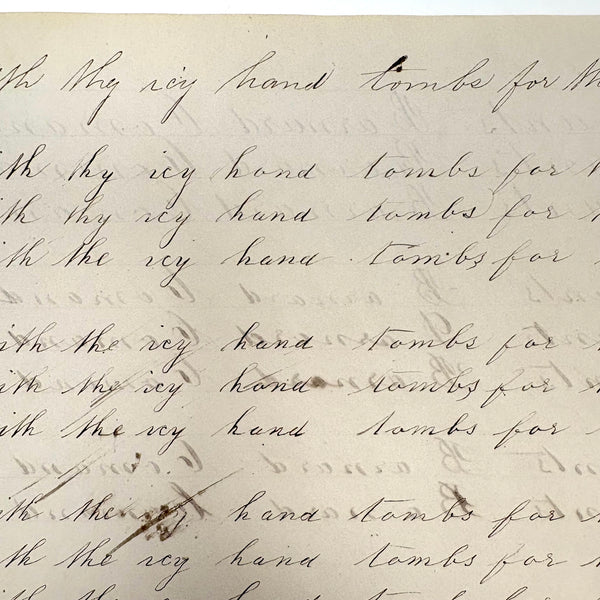 ith thy icy hand tombs for th
ith thy icy hand tombs for
ith thy icy hand tombs for
ith the icy hand tombs for
ith the icy hand tombs for
ith the icy hand tombs for
ith the icy hand tombs for
ith the hand tombs for
ith the icy hand tombs for
ith the icy hand tombs for